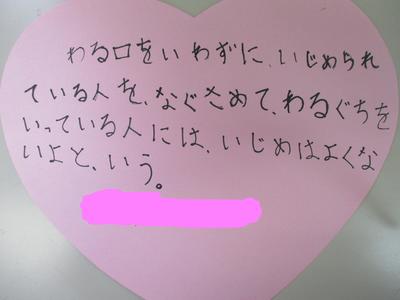 わる口をいわずに、いじめられ
ている人を、なぐさめて、わるぐちを
いっている人には、いじめはよくな
いよと、いう。